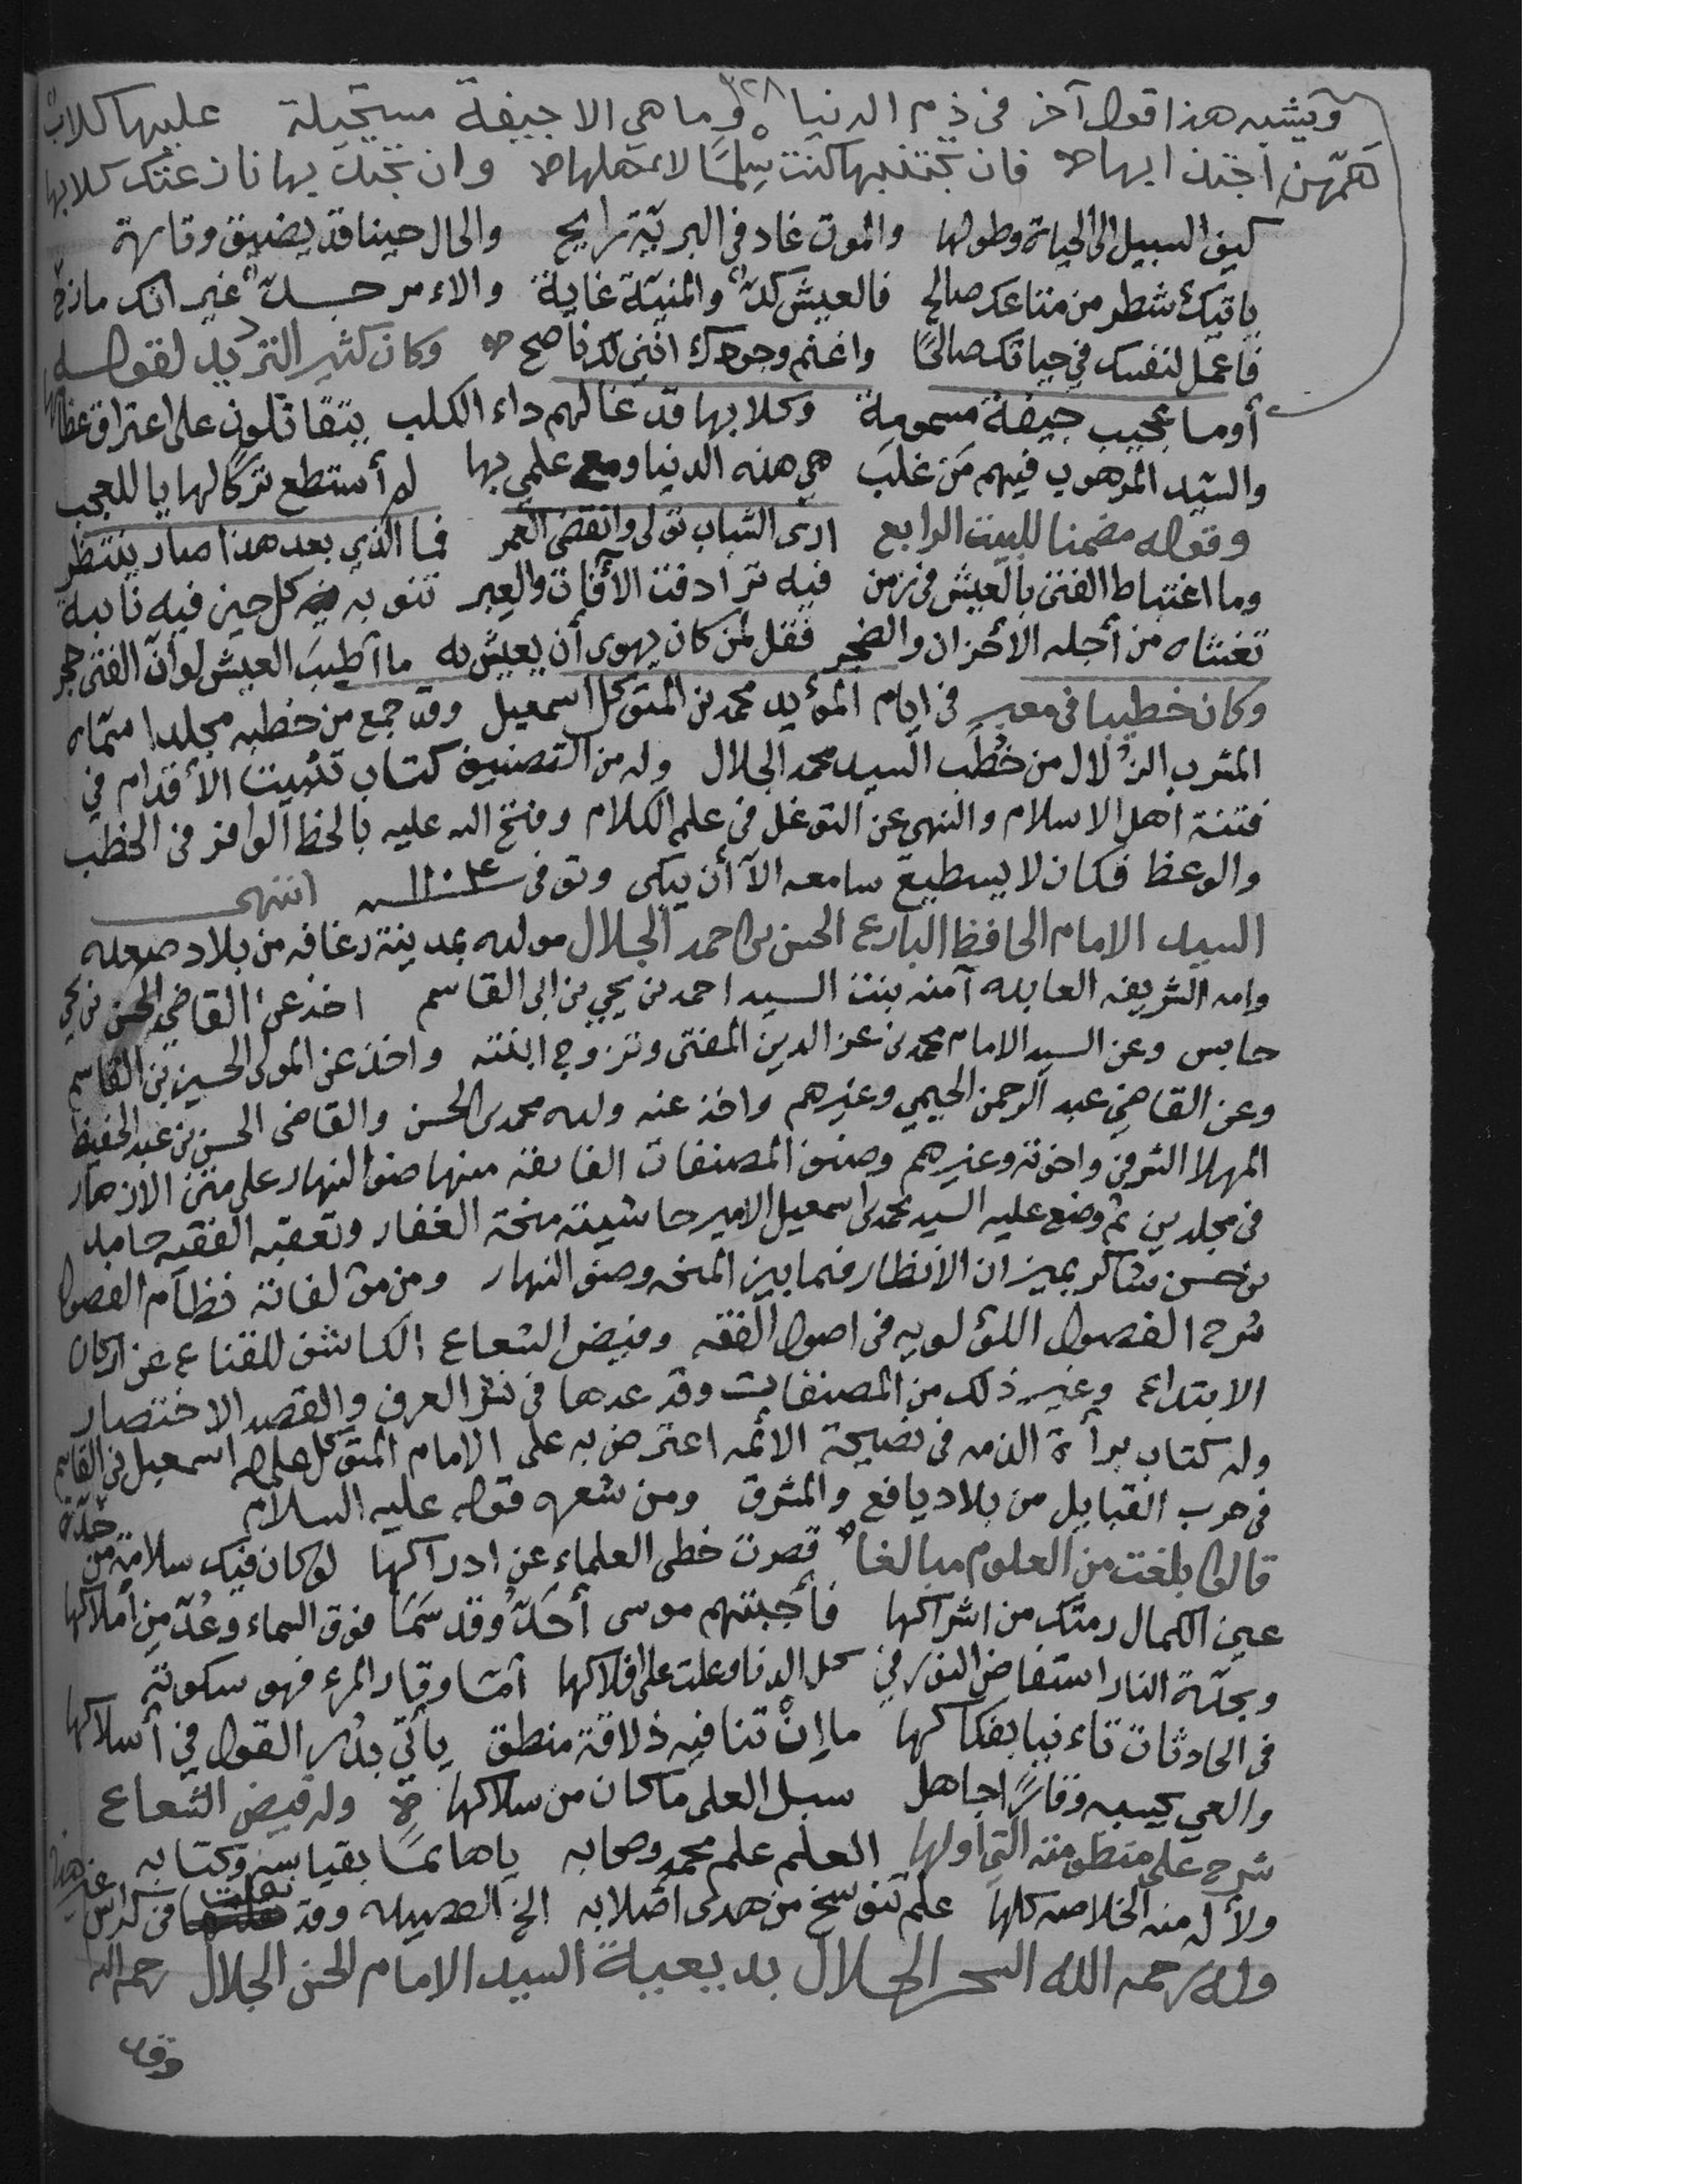 ٣٢٨
ويشبه هذا قول آخر في ذم الدنيا وما هي الا جيفة مستحيلة عليها كلاب
همهن اجتذابها فان تجتنبها كنت سلما لاهلها وان تجتذبها نازعتك كلابها
كيف السبيل الى الحياة وطولها والموت غاد في البرية رايح والحال حينا قد يضيق وتارة
ياتيك شطر من متاعك صالح فالعيش كد والمنية غاية والامر جد غير انك مازح
فاعمل لنفسك في حياتك صالحًا واغنم وجودك انني لك ناصح وكان كثير الترديد لقوله
أوما عجيب جيفة مسمومة وكلابها قد غالهم داء الكلب يتقاتلون على اعتراق عظامها
والسيد المرهوب فيهم مَن غلَب هي هذه الدنيا ومع علمي بها لم أستطع تركًا لها يا للعجب
وقوله مضمنا للبيت الرابع ارى الشباب تولى وانقضى العمر فما الذي بعد هذا صار ينتظر
وما اغتباط الفتى بالعيش في زمن فيه ترادفت الآفات والعبر تنوبه كل حين فيه نايبة
تغشاه من أجله الاحزان والضجر فقل لمن كان يهوى أن يعيش به ما اطيبَ العيش لو أنّ الفتى حجر
وكان خطيبا في معبر في ايام المؤيد محمد بن المتوكل اسمعيل وقد جمع من خطبه مجلدا سمّاه
المشرب الزُلال من خُطَب السيد محمد الجلال وله من التصنيف كتاب تثبيت الأقدام في
فتنة اهل الاسلام والنهي عن التوغل في علم الكلام وفتح الله عليه بالحظ الوافر في الخطب
والوعظ فكان لا يسطيع سامعه الآ أن يبكى وتوفى سنة ١١٠٤ انتهى
السيد الامام الحافظ البارع الحسن بن احمد الجلال مولده بمدينة رغافه من بلاد صعده
وامه الشريفه العابده آمنه بنت السيد احمد بن يحيى بن ابى القاسم اخذ عن القاضي الحسن بن يحيى
حابس وعن السيد الامام محمد بن عز الدين المفتى وتزوج ابنته واخذ عن المولى الحسين بن القاسم
وعن القاضي عبد الرحمن الحيمي وغيرهم واخذ عنه ولده محمد بن الحسن والقاضى الحسن بن عبد الحفيظ
المهلا الشرفي واخوته وغيرهم وصنف المصنفات الفايقة منها ضوء النهار على متن الازهار
في مجلدين ثم وضع عليه السيد محمد بن اسمعيل الامير حاشيته منحة الغفار وتعقبه الفقيه حامد
بن حسن شاكر بميزان الانظار فيما بين المنحه وضوء النهار ومن مؤلفاته نظام الفصول
شرح الفصول اللؤلويه في اصول الفقه وفيض الشعاع الكاشف للقناع عن اركان
الابتداع وغير ذلك من المصنفات وقد عدها في نشر العرف والقصد الاختصار
وله كتاب برأة الذمه في نصيحة الائمه اعترض به على الامام المتوكل على الله اسمعيل بن القاسم
في حرب القبايل من بلاد يافع والمشرق ومن شعره قوله عليه السلام
قالوا بلغت من العلوم مبالغا قصرت خطى العلماء عن ادراكها لو كان فيك سلامة من حدّة
عين الكمال رمتك من اشراكها فأجبتهم موسى أحَدُّ وقد سَمَا فوق السماء وعُدّ من أملاكها
وبحدّة النار استفاض النور في كل الدنا وعلت على افلاكها امّا وقار المرء فهو سكونه
في الحادثات تاء نيا بفكاكها ما إنْ تنافيه ذلاقة منطق يأتي بدُر القول في أسلاكها
والعي يحسبه وقارًا جاهل سبل العلى ما كان من سلاكها وله فيض الشعاع
شرح على منظومته التي اولها العلم علم محمد وصحابه ياهائمًا بقياسه وكتابه
ولأله منه الخلاصه كلها علم تنوسخ من هدى اصلابه الخ القصيده وقد نقلت في كراس غير هذا
وله رحمه الله السحر الحلال بديعية السيد الامام الحسن الجلال رحمه الله